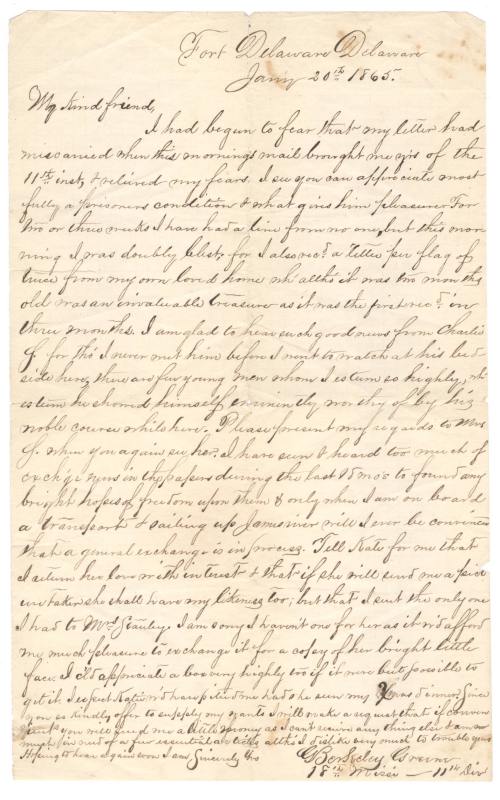 Fort Delaware Delaware
Jany 20th 1865.
My kind friend,
I had begun to fear that my letter had
miscarried when this mornings mail brought me yrs of the
11th inst, & relieved my fears. I see you can appreciate most
fully a prisoners condition & what gives him pleasure. For
two or three weeks I have had a line from no one, but this mor
ning I was doubly blest, for I also recd a letter per flag of
truce from my own loved home wh altho it was two months
old was an invaluable treasure as it was the first recd in
three months. I am glad to hear such good news from Charlie
S. for tho' I never met him before I went to watch at his bed
side here, there are few young men whom I esteem so highly, wh
esteem he showed himself eminently worthy of by his
noble course while here. Please present my regards to Mrs
S. when you again see her. I have seen & heard too much of
exch'ge news in the papers during the last 18 mos to found any
bright hopes of freedom upon them & only when I am on board
a transport & sailing up James river will I ever be convinced
that a general exchange is in process. Tell Kate for me that
I return her love with interest & that if she will send me a pict
ure taken she shall have my likeness too; but that I sent the only one
I had to Mrs Stanley. I am sorry I haven't one for her as it w'd afford
me much pleasure to exchange it for a copy of her bright little
face. I c'ld appreciate a box very highly too if it were but possible to
get it. I expect Katie w'd have pitied me had she seen my Xmas dinner. Since
you so kindly offer to supply my wants I will make a request that if conven
ient you will send me a little money as I can't receive any thing else. I am
much in need of a few essential articles, altho I dislike very much to trouble you.
Hoping to hear again soon I am Sincerely Yrs
G Berkeley Green
18th Missi — 11th Div